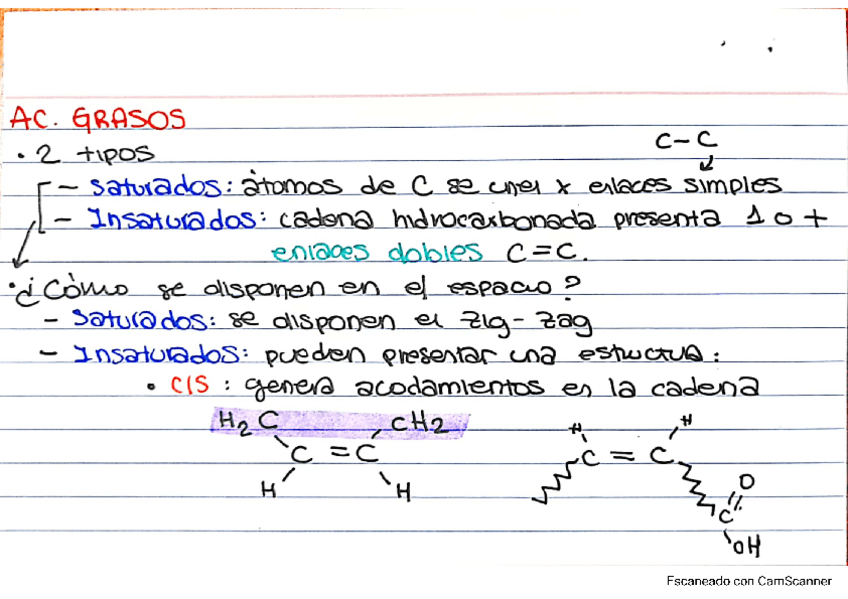 AC. GRASOS
· 2 tipos
C-C
- Saturados: átomos de C se unen x enlaces simples
- Insaturados: cadena hidrocarbonada presenta 1 o +
enlaces dobles C=C.
·¿Cómo se disponen en el espacio?
- Saturados: se disponen en zig-zag
- Insaturados: pueden presentar una estructua:
• CIS: genera acodamientos en la cadena
H2C CH2
H H
C = C
C = C
H H
O
C
OH
Escaneado con CamScanner